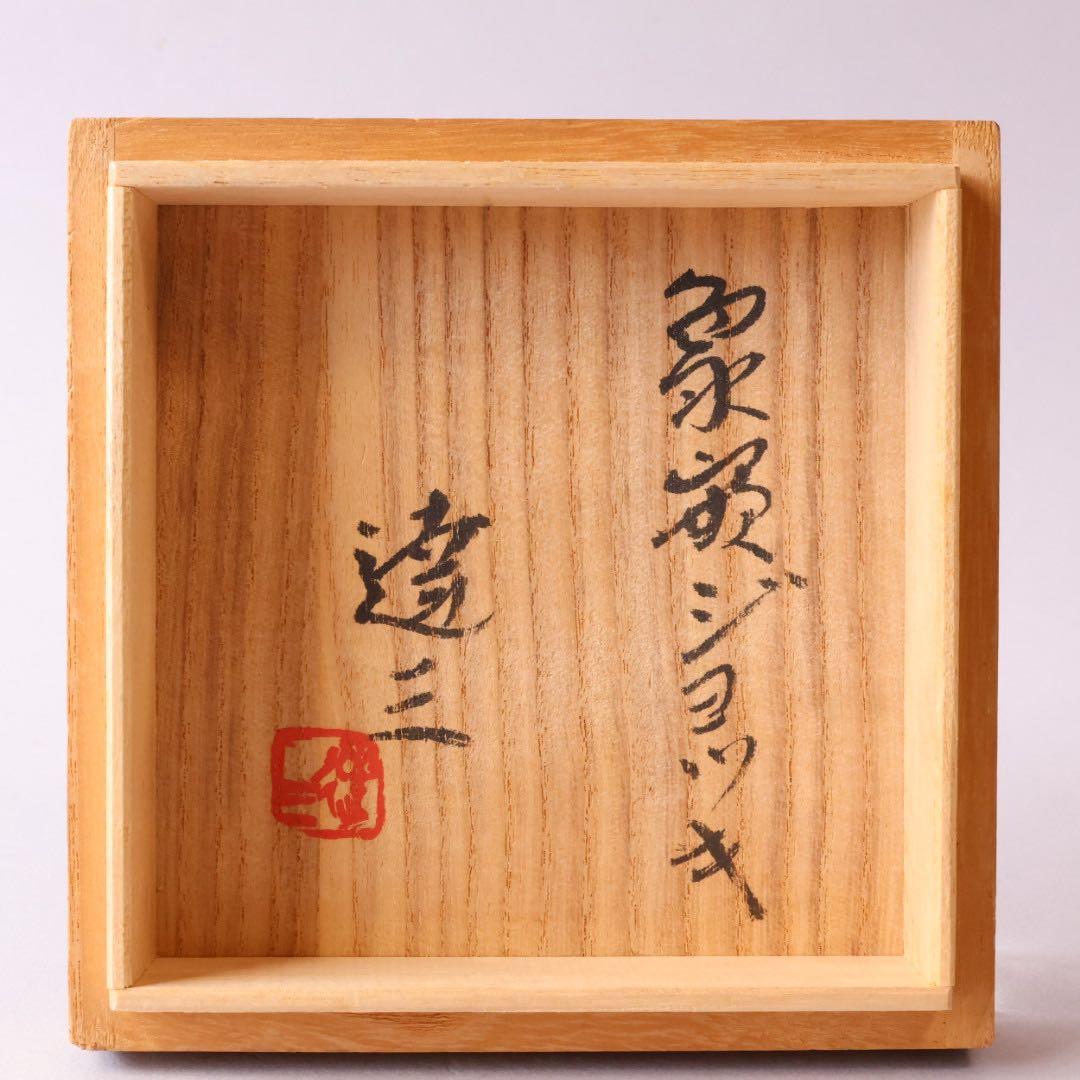 象嵌ジョッキ
達三